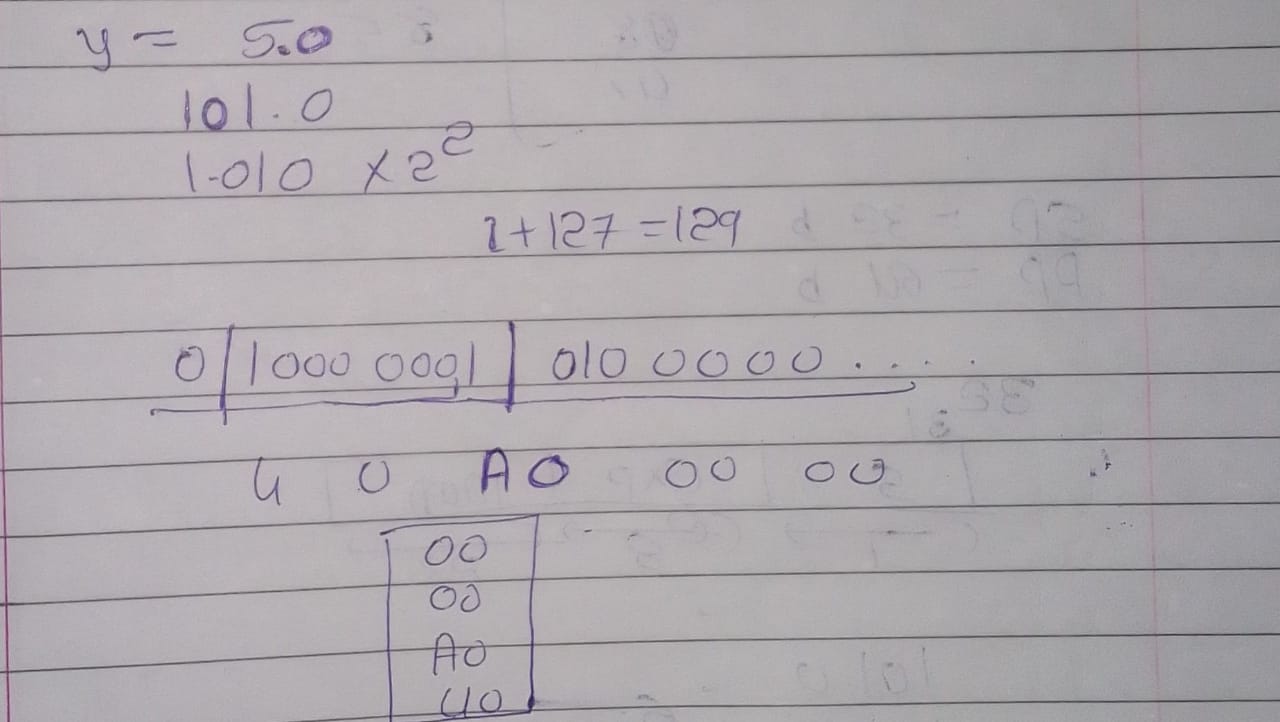 y = 5.0
101.0
1.010 x 2²
2+127 = 129
0 | 1000 0001 | 010 0000 ....
4 0 A0 00 00
00
00
A0
40